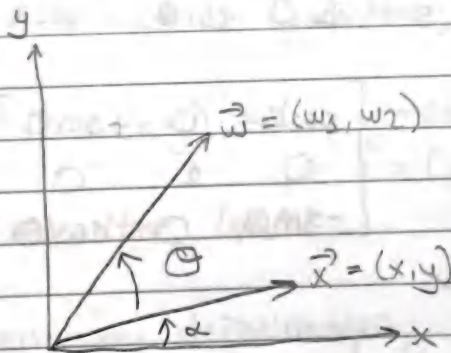 y
w⃗ = (w₁, w₂)
θ
x⃗ = (x, y)
α
x